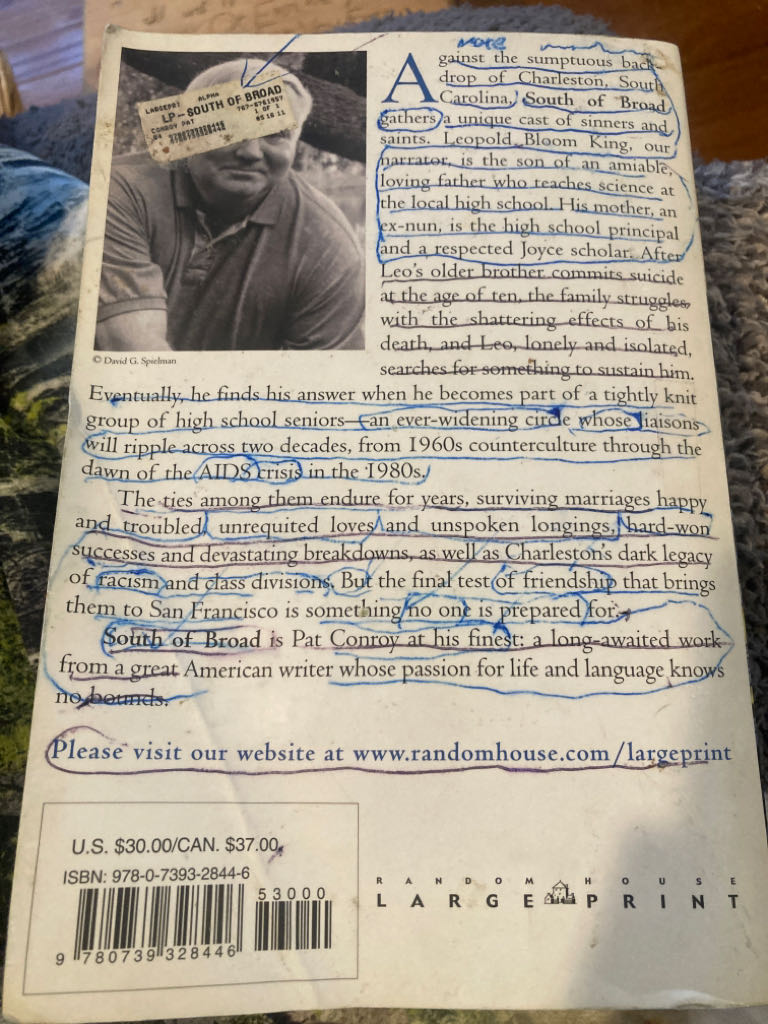 more
LARGEPRI ALPHA
LP - SOUTH OF BROAD
CONROY PAT 767-8761957
1 OF 1
05 18 11
© David G. Spielman
Against the sumptuous back-
drop of Charleston, South
Carolina, South of Broad
gathers a unique cast of sinners and
saints. Leopold Bloom King, our
narrator, is the son of an amiable,
loving father who teaches science at
the local high school. His mother, an
ex-nun, is the high school principal
and a respected Joyce scholar. After
Leo's older brother commits suicide
at the age of ten, the family struggles
with the shattering effects of his
death, and Leo, lonely and isolated,
searches for something to sustain him.
Eventually, he finds his answer when he becomes part of a tightly knit
group of high school seniors—an ever-widening circle whose liaisons
will ripple across two decades, from 1960s counterculture through the
dawn of the AIDS crisis in the 1980s.
The ties among them endure for years, surviving marriages happy
and troubled, unrequited loves and unspoken longings, hard-won
successes and devastating breakdowns, as well as Charleston's dark legacy
of racism and class divisions. But the final test of friendship that brings
them to San Francisco is something no one is prepared for.
South of Broad is Pat Conroy at his finest: a long-awaited work
from a great American writer whose passion for life and language knows
no bounds.
Please visit our website at www.randomhouse.com/largeprint
U.S. $30.00/CAN. $37.00
ISBN: 978-0-7393-2844-6
53000
9 780739 328446
RANDOM HOUSE
LARGE PRINT